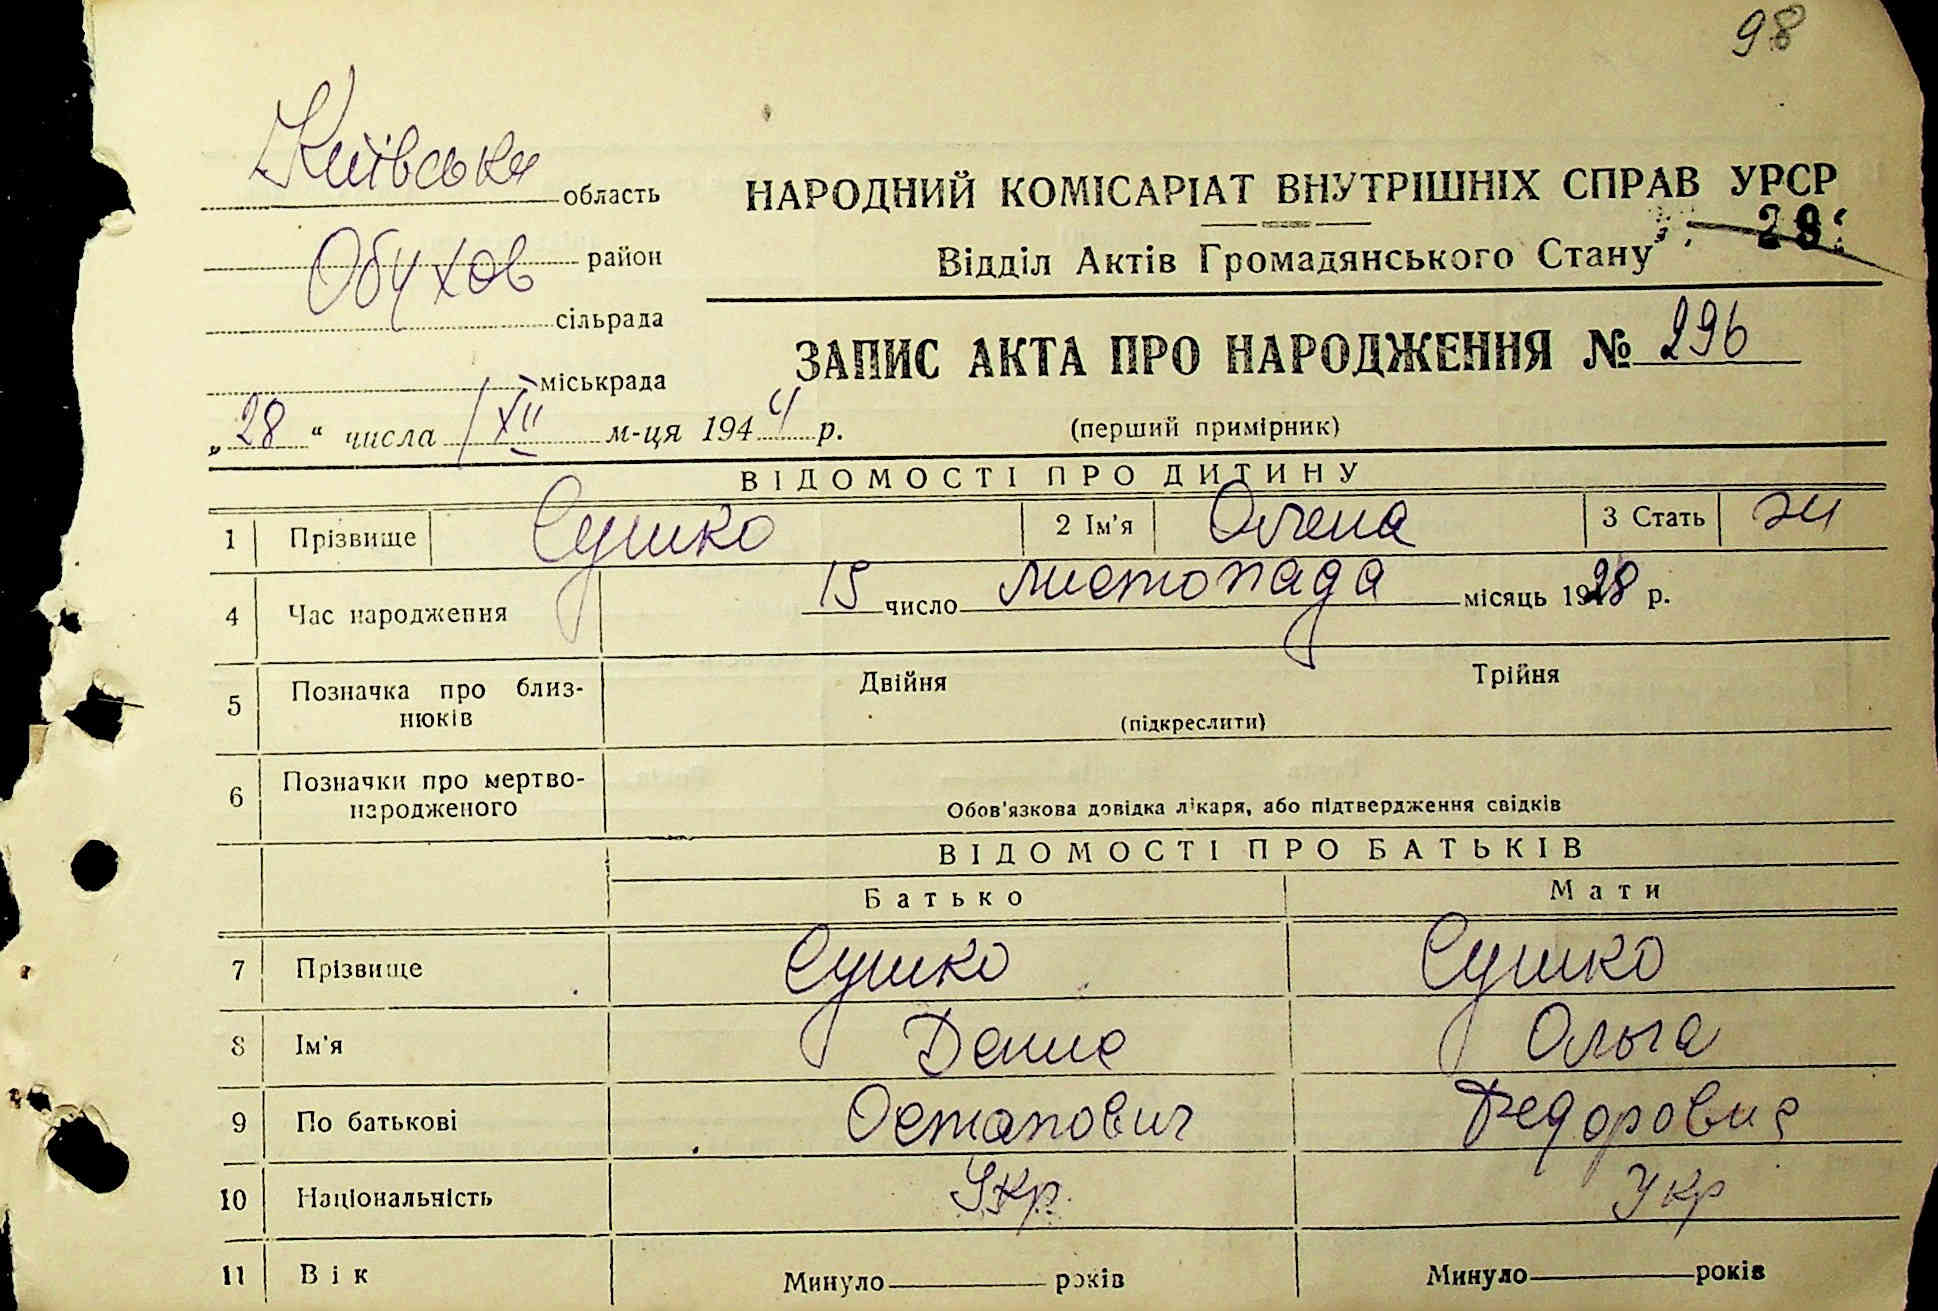 98
Київська область
Обухов район
сільрада
міськрада
„28“ числа XII м-ця 1944 р.
НАРОДНИЙ КОМІСАРІАТ ВНУТРІШНІХ СПРАВ УРСР
Відділ Актів Громадянського Стану
ЗАПИС АКТА ПРО НАРОДЖЕННЯ № 296
(перший примірник)
ВІДОМОСТІ ПРО ДИТИНУ
1 Прізвище Сушко 2 Ім'я Олена 3 Стать ж
4 Час народження 15 число листопада місяць 1928 р.
5 Позначка про близ-
нюків
Двійня Трійня
(підкреслити)
6 Позначки про мертво-
народженого
Обов'язкова довідка лікаря, або підтвердження свідків
ВІДОМОСТІ ПРО БАТЬКІВ
Батько Мати
7 Прізвище Сушко Сушко
8 Ім'я Денис Ольга
9 По батькові Остапович Федоровна
10 Національність Укр. Укр
11 Вік Минуло років Минуло років